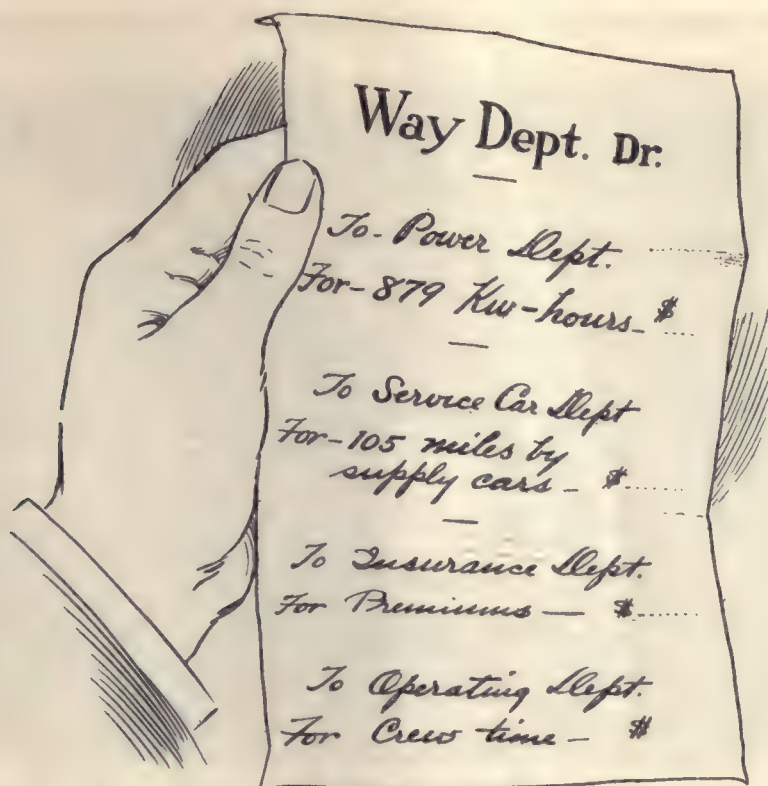 Way Dept. Dr.
To- Power Dept.
For- 879 Kw-hours- $
To Service Car Dept
For- 105 miles by
supply cars - $
To Insurance Dept.
For Premiums — $
To Operating Dept.
For Crew time - $